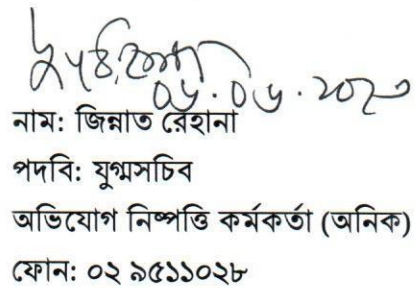 নাম: জিন্নাত রেহানা
পদবি: যুগ্মসচিব
অভিযোগ নিষ্পত্তি কর্মকর্তা (অনিক)
ফোন: ০২ ৯৫১১০২৮